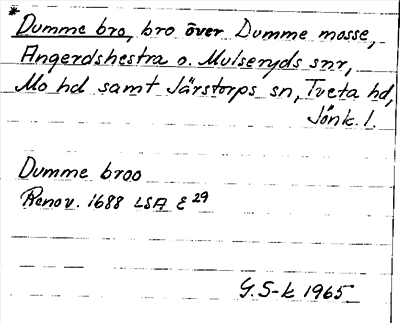 * Dumme bro, bro över Dumme mosse,
Angerdshestra o. Mulseryds snr,
Mo hd samt Järstorps sn, Tveta hd,
Jönk. l.
Dumme broo
Renov. 1688 LSA E 29
G. S-k 1965